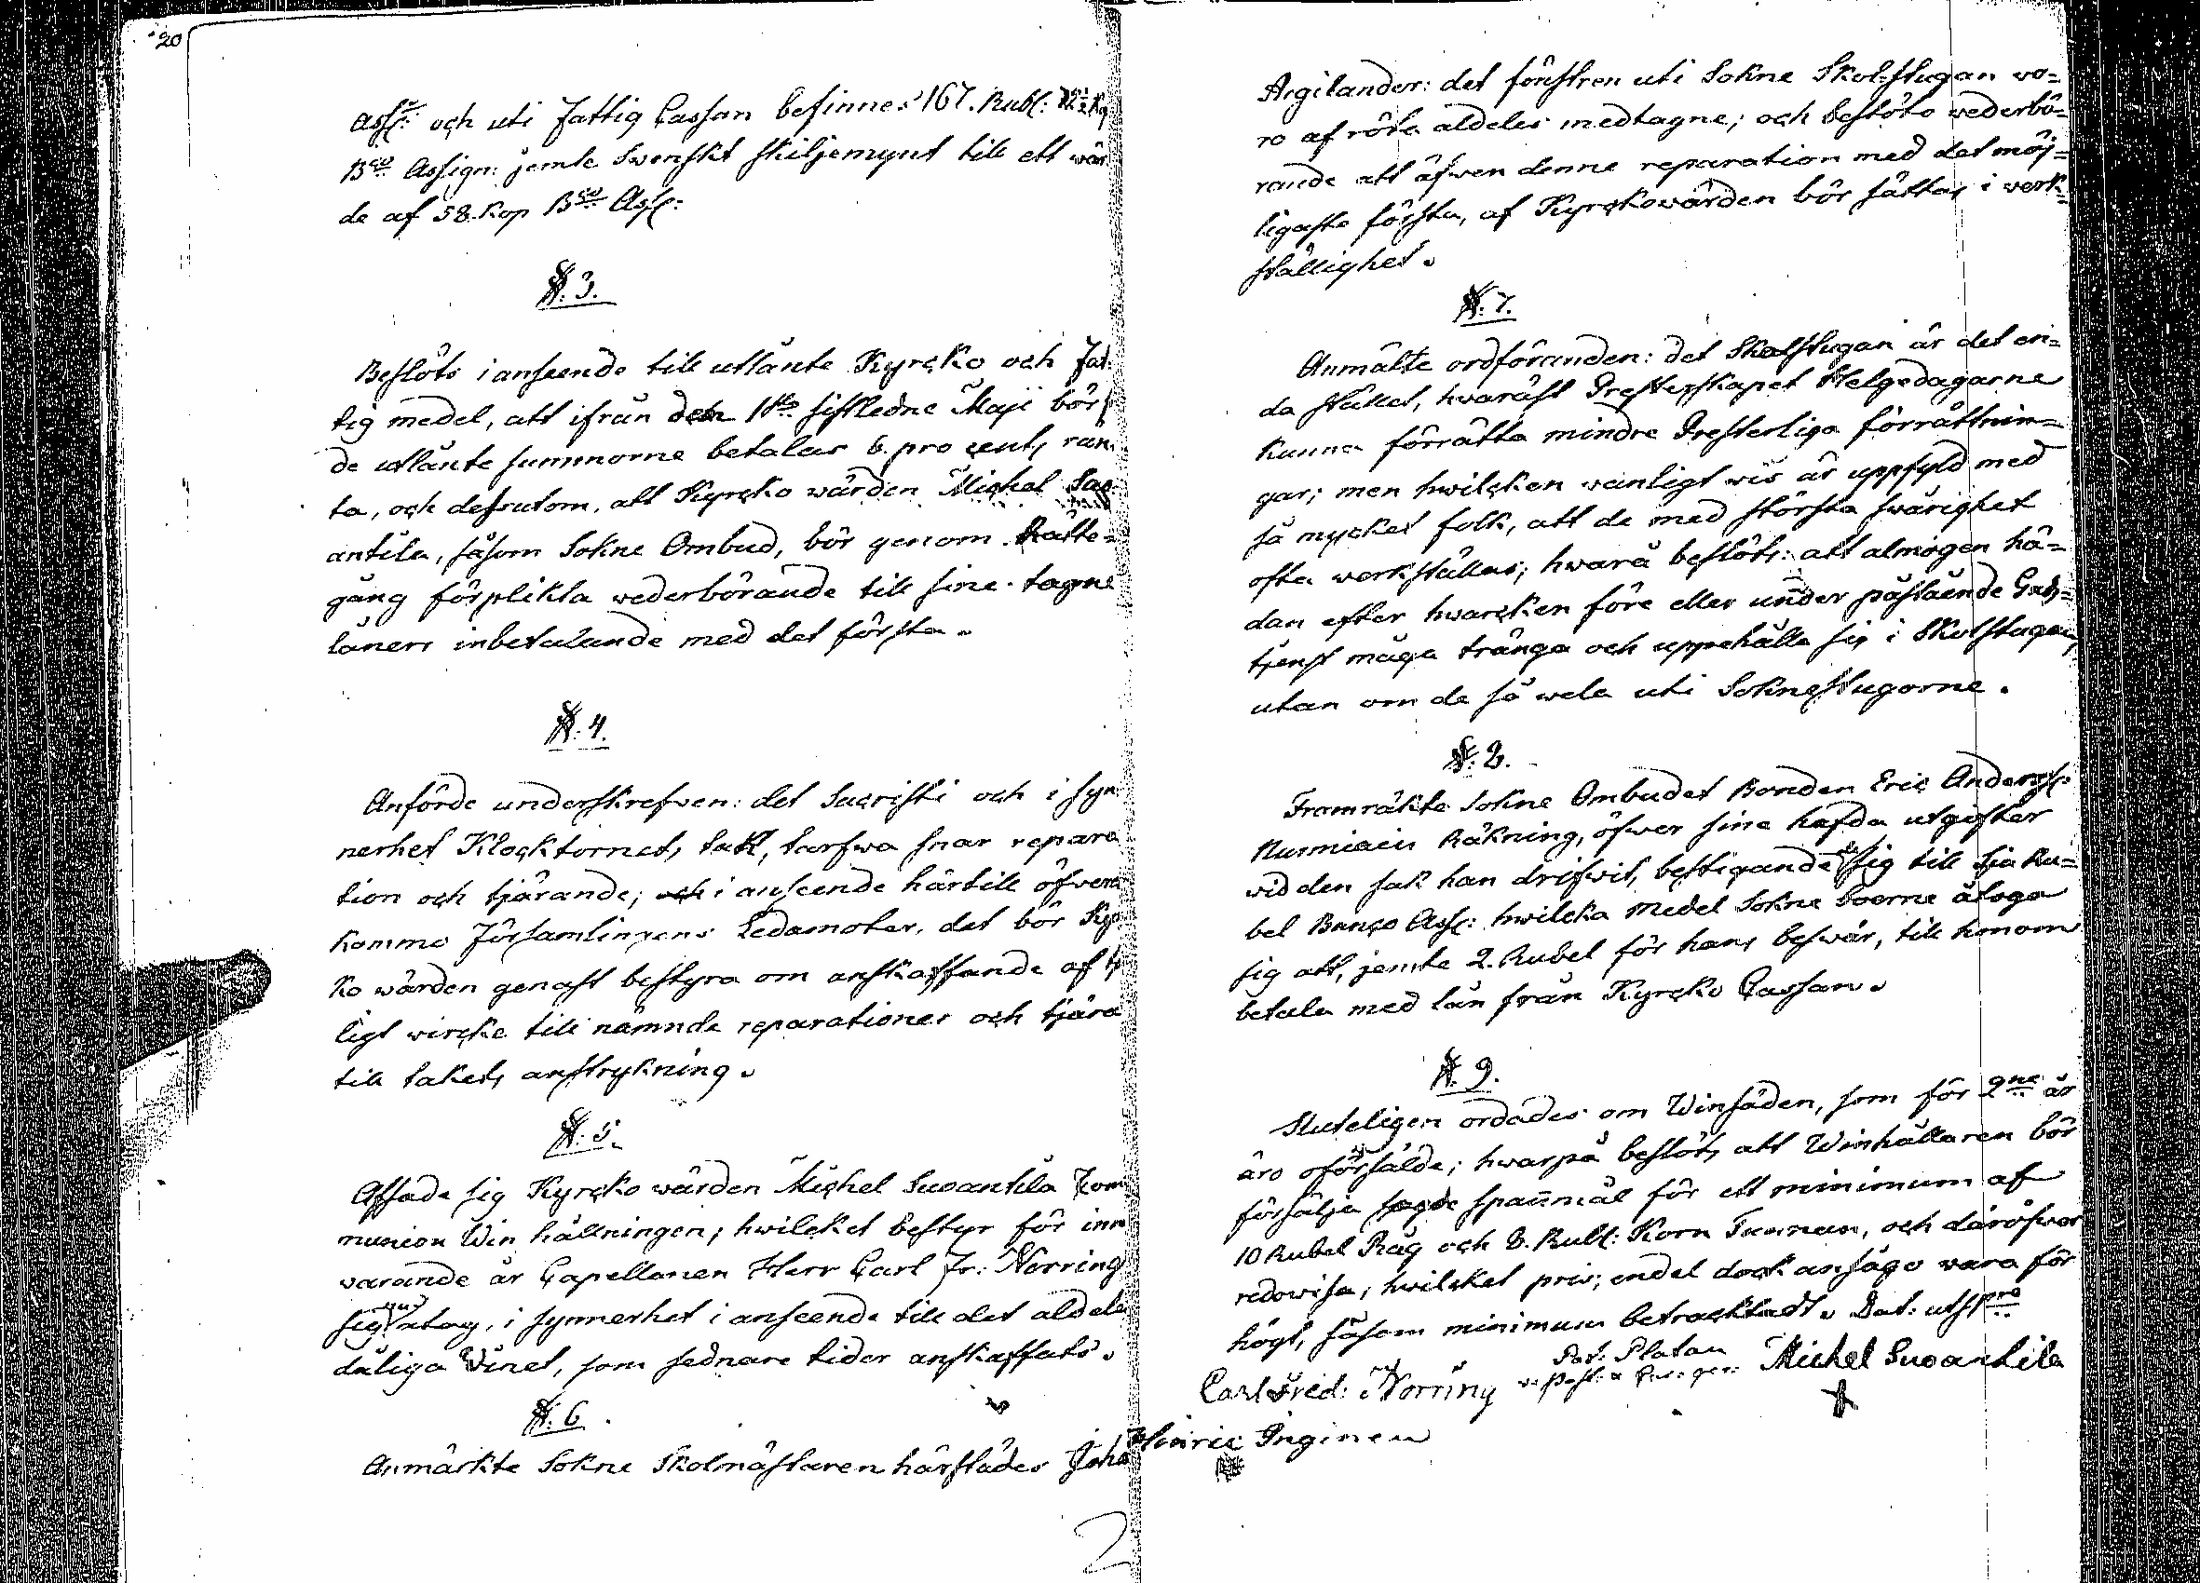 20
Ass: och uti Fattig Cassan befinnes 167. Rubl:
Bco Assign: jemte Swenskt skiljemynt till ett wär
de af 58. Kop Bco Ass:
§. 3.
Beslöts i anseende till utlånte Kyrcko och Fat
tig medel, att ifrån den 1sta sistledne Maji bör
de utlånte summorne betalas 6. pro cents rän
ta, och desutom, att Kyrcko wärden Michel Suo
antila, såsom Sokne Ombud, bör genom Rätte=
gång förplikta wederbörande till sine tagne
låners inbetalande med det första.
§. 4.
Anförde underskrefwen: det Sacristi och i syn
nerhet Klocktornets tak, tarfwa snar repara
tion och tjärande; och i anseende härtill öfwerens
kommo Församlingens Ledamoter, det bör Kyr
ko wärden genast bestyra om anskaffande af
ligt wircke till nämnde reparationer och tjära
till takets anstrykning.
§. 5.
Afsade sig Kyrcko wärden Michel Suoantila Kom
munion Win hållningen; hwilcket bestyr för inne
warande år Capellanen Herr Carl Fr: Norring
sig åtog, i synnerhet i anseende till det aldeles
dåliga Winet, som sednare tider anskaffats.
§. 6.
Anmärkte Sokne Skolmästaren härstädes Joh
Argilander: det fönstren uti Sokne Skol-stugan wo=
ro af röta aldeles medtagne; och beslöto wederbö=
rande att äfwen denne reparation med det möj=
ligaste första, af Kyrckowärden bör sättas i werk=
ställighet.
§. 7.
Anmälte ordföranden: det Skolstugan är det en=
da stället, hwaräst Presterskapet Helgedagarne
kunna förrätta mindre Presterliga förrättnin=
gar; men hwilcken wanligt wis är uppfyld med
så mycket folk, att de med största swårighet
ofta werkställas; hwarå beslöts: att almogen hä=
dan efter hwarcken före eller under påstående Guds=
tjenst måga tränga och uppehålla sig i Skolstugan,
utan om de så wela uti Soknestugorne.
§. 8.
Framräkte Sokne Ombudet Bonden Eric Anders:
Nurmiain Räkning, öfwer sine hafda utgifter
wid den sak han drifwit, bestigande sig till tio Ru=
bel Banco Ass: hwilcka medel Sokne boerne åtogo
sig att, jemte 2. Rubel för hans beswär, till honom
betala med lån från Kyrcko Cassan.
§. 9.
Sluteligen ordades om Winsäden, som för 2ne år
äro oförsålde; hwarpå beslöts att Winhållaren bör
försälja sagde spannmål för ett minimum af
10 Rubel Råg och 8. Rubl: Korn Tunnan, och däröfwer
redowisa; hwilcket pris, endel dock ansågo wara för
högt, såsom minimum betracktadt. Dat: utsupra
Pet: Platan
Carl Fred: Norring Michel Suoantila
Hinric Inginen
2